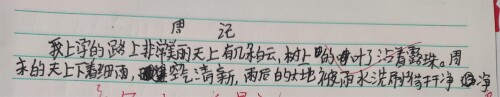 周记
我上学的路上非常美丽天上有几朵白云,树上的叶子沾着露珠。周
末的天上下着细雨,空气清新,雨后的土地被雨水洗刷得干干净净